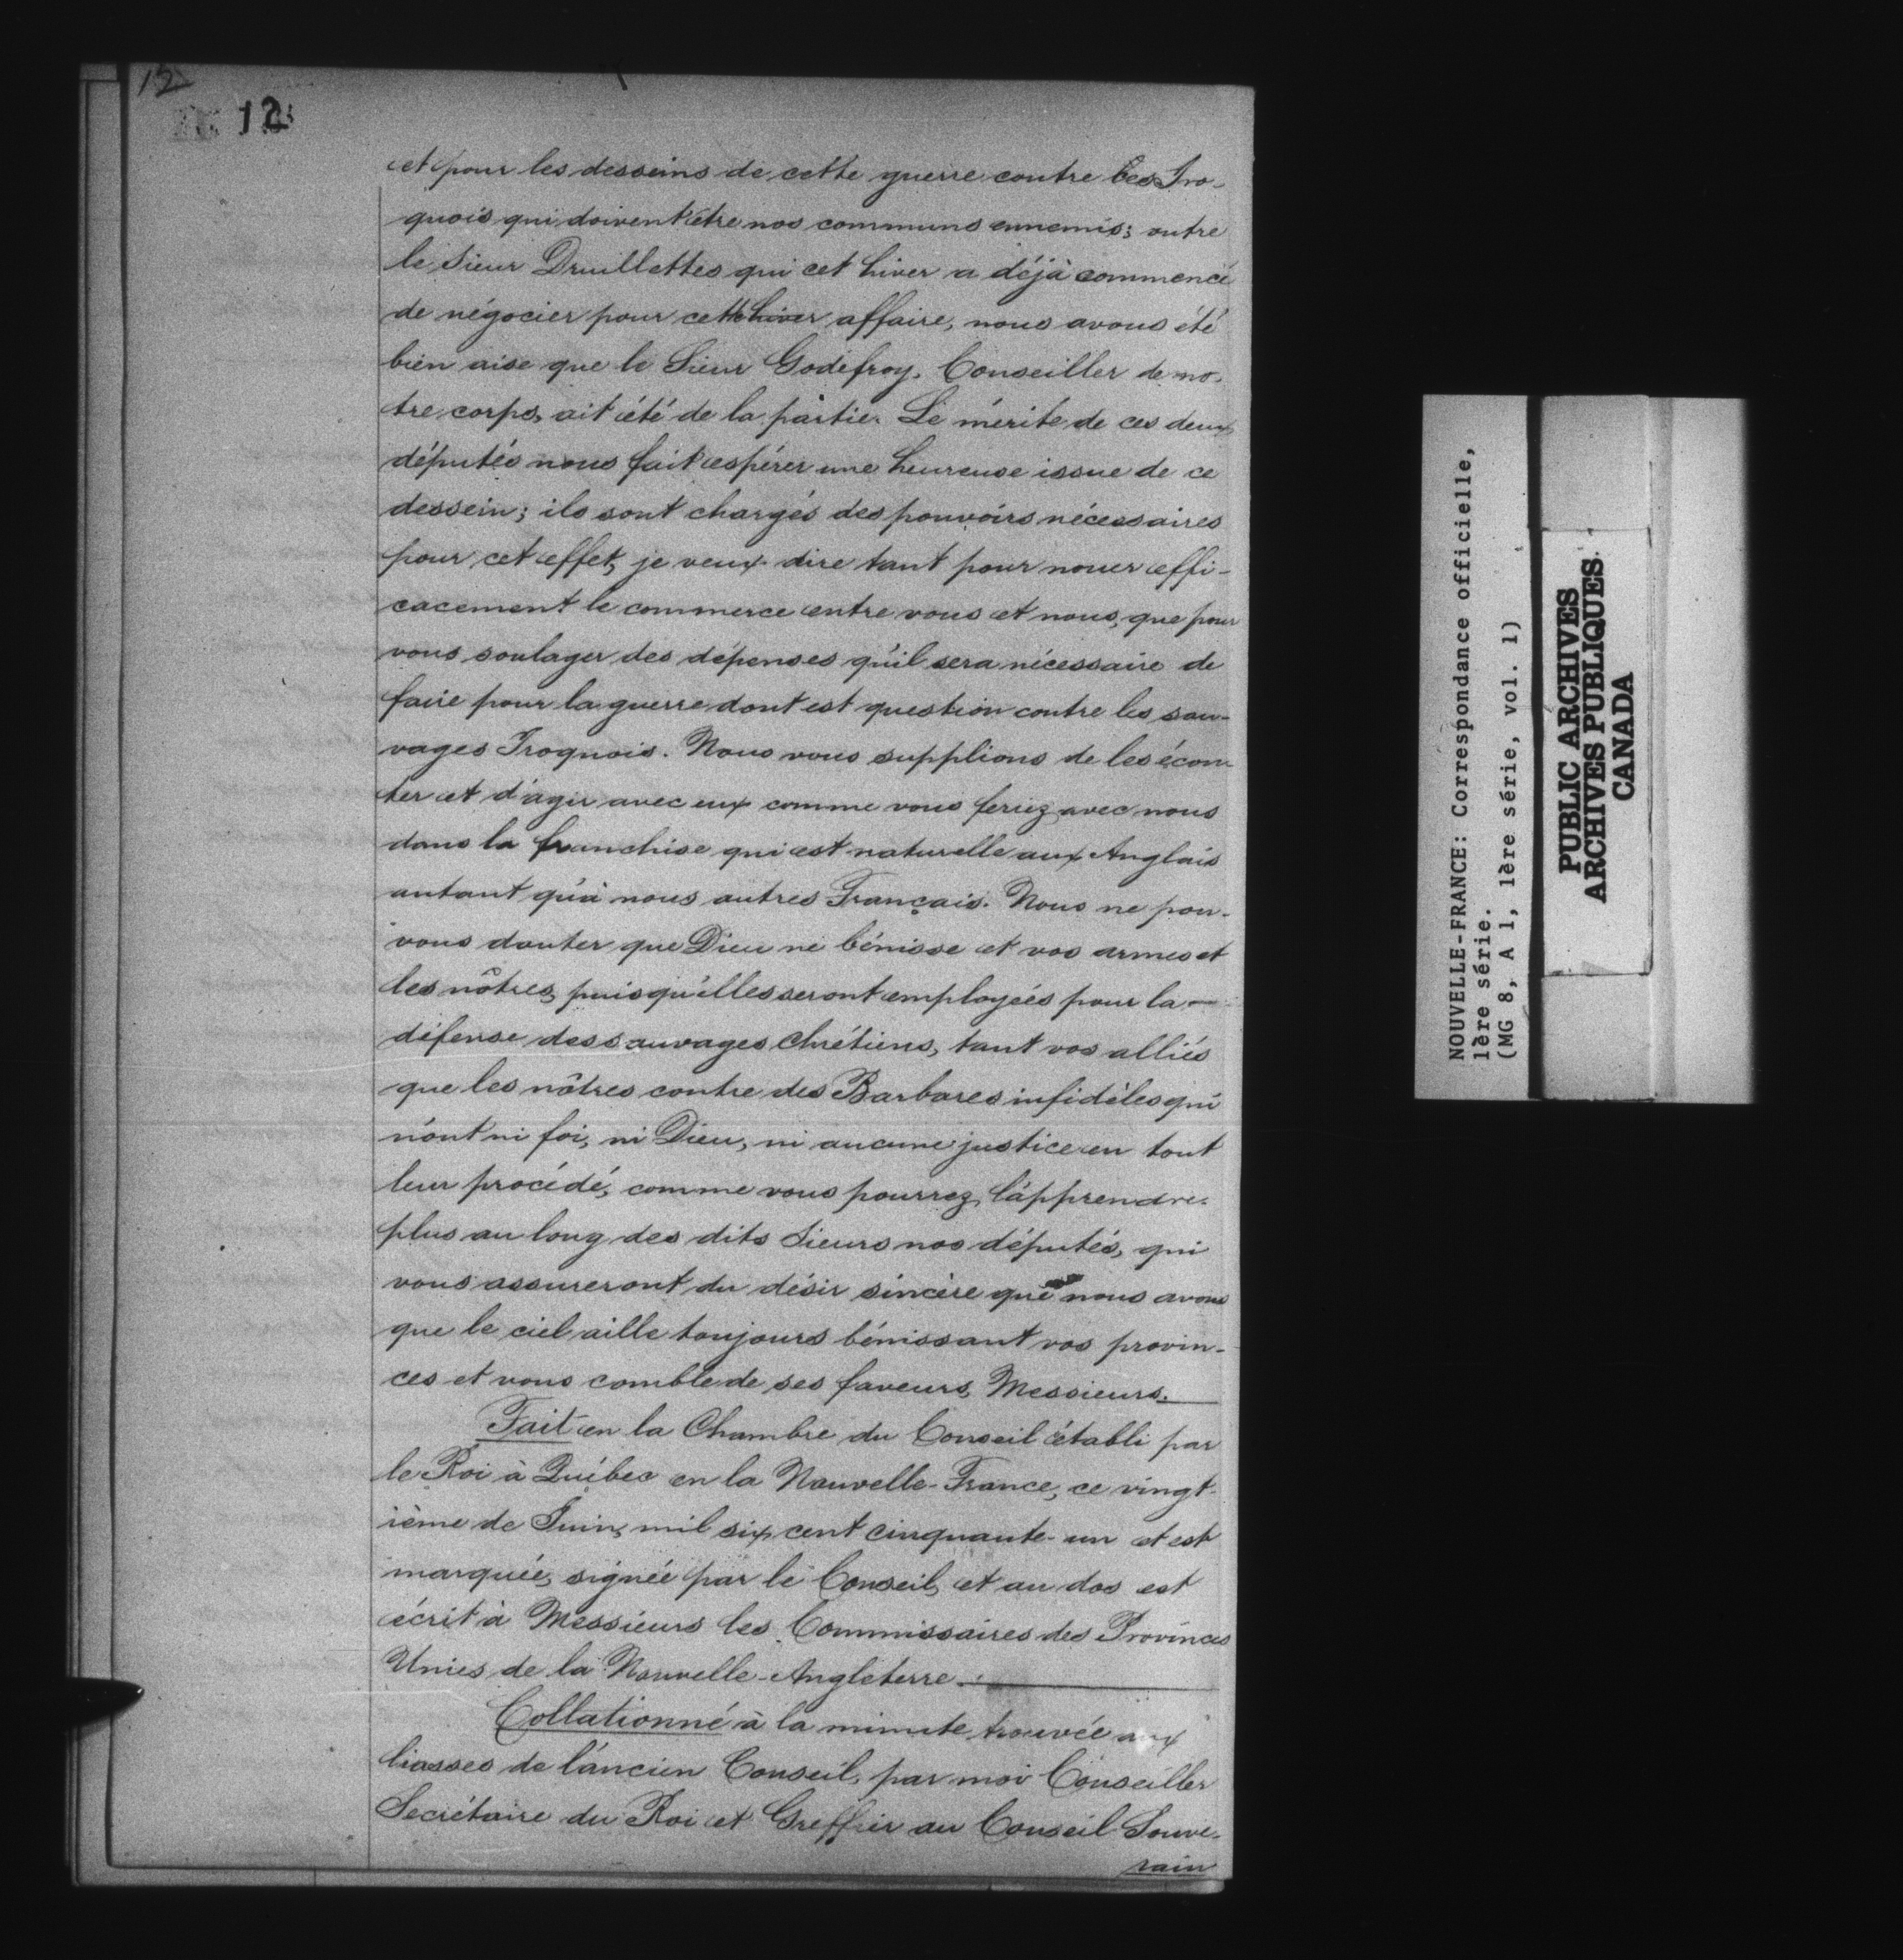 12
12
et pour les desseins de cette guerre contre les Iro-
quois qui doivent être nos communs ennemis; outre
le Sieur Druillettes qui cet hiver a déjà commencé
de négocier pour cette hiver affaire, nous avons été
bien aise que le Sieur Godefroy, Conseiller de no-
tre corps, ait été de la partie. Le mérite de ces deux
députés nous fait espérer une heureuse issue de ce
dessein; ils sont chargés des pouvoirs nécessaires
pour cet effet, je veux dire tant pour nouer effi-
cacement le commerce entre vous et nous, que pour
vous soulager des dépenses qu'il sera nécessaire de
faire pour la guerre dont est question contre les sau-
vages Iroquois. Nous vous supplions de les écou-
ter et d'agir avec eux comme vous feriez avec nous
dans la franchise qui est naturelle aux Anglais
autant qu'à nous autres Français. Nous ne pou-
vons douter que Dieu ne bénisse et vos armes et
les nôtres, puisqu'elles seront employées pour la
défense des sauvages chrétiens, tant vos alliés
que les nôtres contre des Barbares infidèles qui
n'ont ni foi, ni Dieu, ni aucune justice en tout
leur procédé, comme vous pourrez l'apprendre
plus au long des dits Sieurs nos députés, qui
vous assureront du désir sincère que nous avons
que le ciel aille toujours bénissant vos provin-
ces et vous comble de ses faveurs, Messieurs.
Fait en la Chambre du Conseil établi par
le Roi à Québec en la Nouvelle-France, ce vingt-
ième de Juin, mil six cent cinquante-un et est
marquée, signée par le Conseil, et au dos est
écrit à Messieurs les Commissaires des Provinces
Unies de la Nouvelle-Angleterre.
Collationné à la minute trouvée aux
liasses de l'ancien Conseil, par moi Conseiller
Secrétaire du Roi et Greffier au Conseil Souve-
rain
NOUVELLE-FRANCE: Correspondance officielle,
1ère série.
(MG 8, A 1, 1ère série, vol. 1)
PUBLIC ARCHIVES
ARCHIVES PUBLIQUES
CANADA